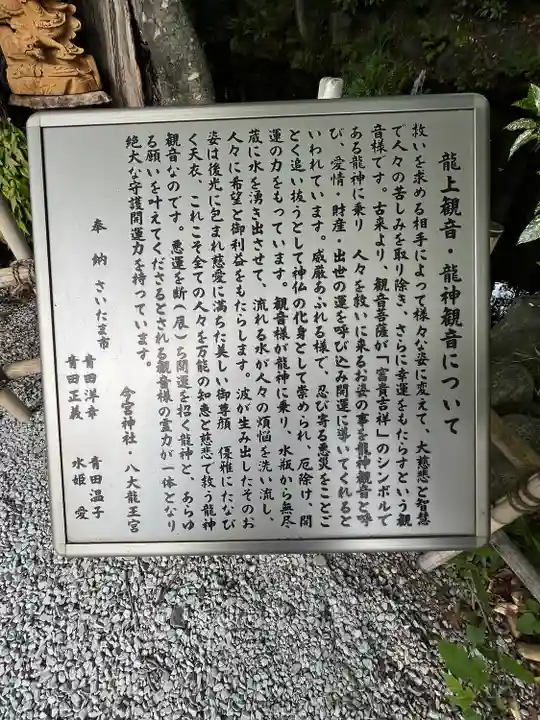 龍上観音・龍神観音について
救いを求める相手によって様々な姿に変えて、大慈悲と智慧
で人々の苦しみを取り除き、さらに幸運をもたらすという観
音様です。古来より、観音菩薩が「富貴吉祥」のシンボルで
ある龍神に乗り　人々を救いに来るお姿の事を龍神観音と呼
び、愛情・財産・出世の運を呼び込み開運に導いてくれると
いわれています。威厳あふれる様で、忍び寄る悪災をことご
とく追い抜うとして神仏の化身として崇められ、厄除け、開
運の力をもっています。観音様が龍神に乗り、水瓶から無尽
蔵に水を湧き出させて、流れる水が人々の煩悩を洗い流し、
人々に希望と御利益をもたらします。波が生み出したそのお
姿は後光に包まれ慈愛に満ちた美しい御尊顔　優雅にたなび
く天衣、これこそ全ての人々を万能の知恵と慈悲で救う龍神
観音なのです。悪運を断（辰）ち開運を招く龍神と、あらゆ
る願いを叶えてくださるとされる観音様の霊力が一体となり
絶大な守護開運力を持っています。
今宮神社・八大龍王宮
奉　納　さいたま市
青田洋幸　青田温子
青田正義　水姫　愛